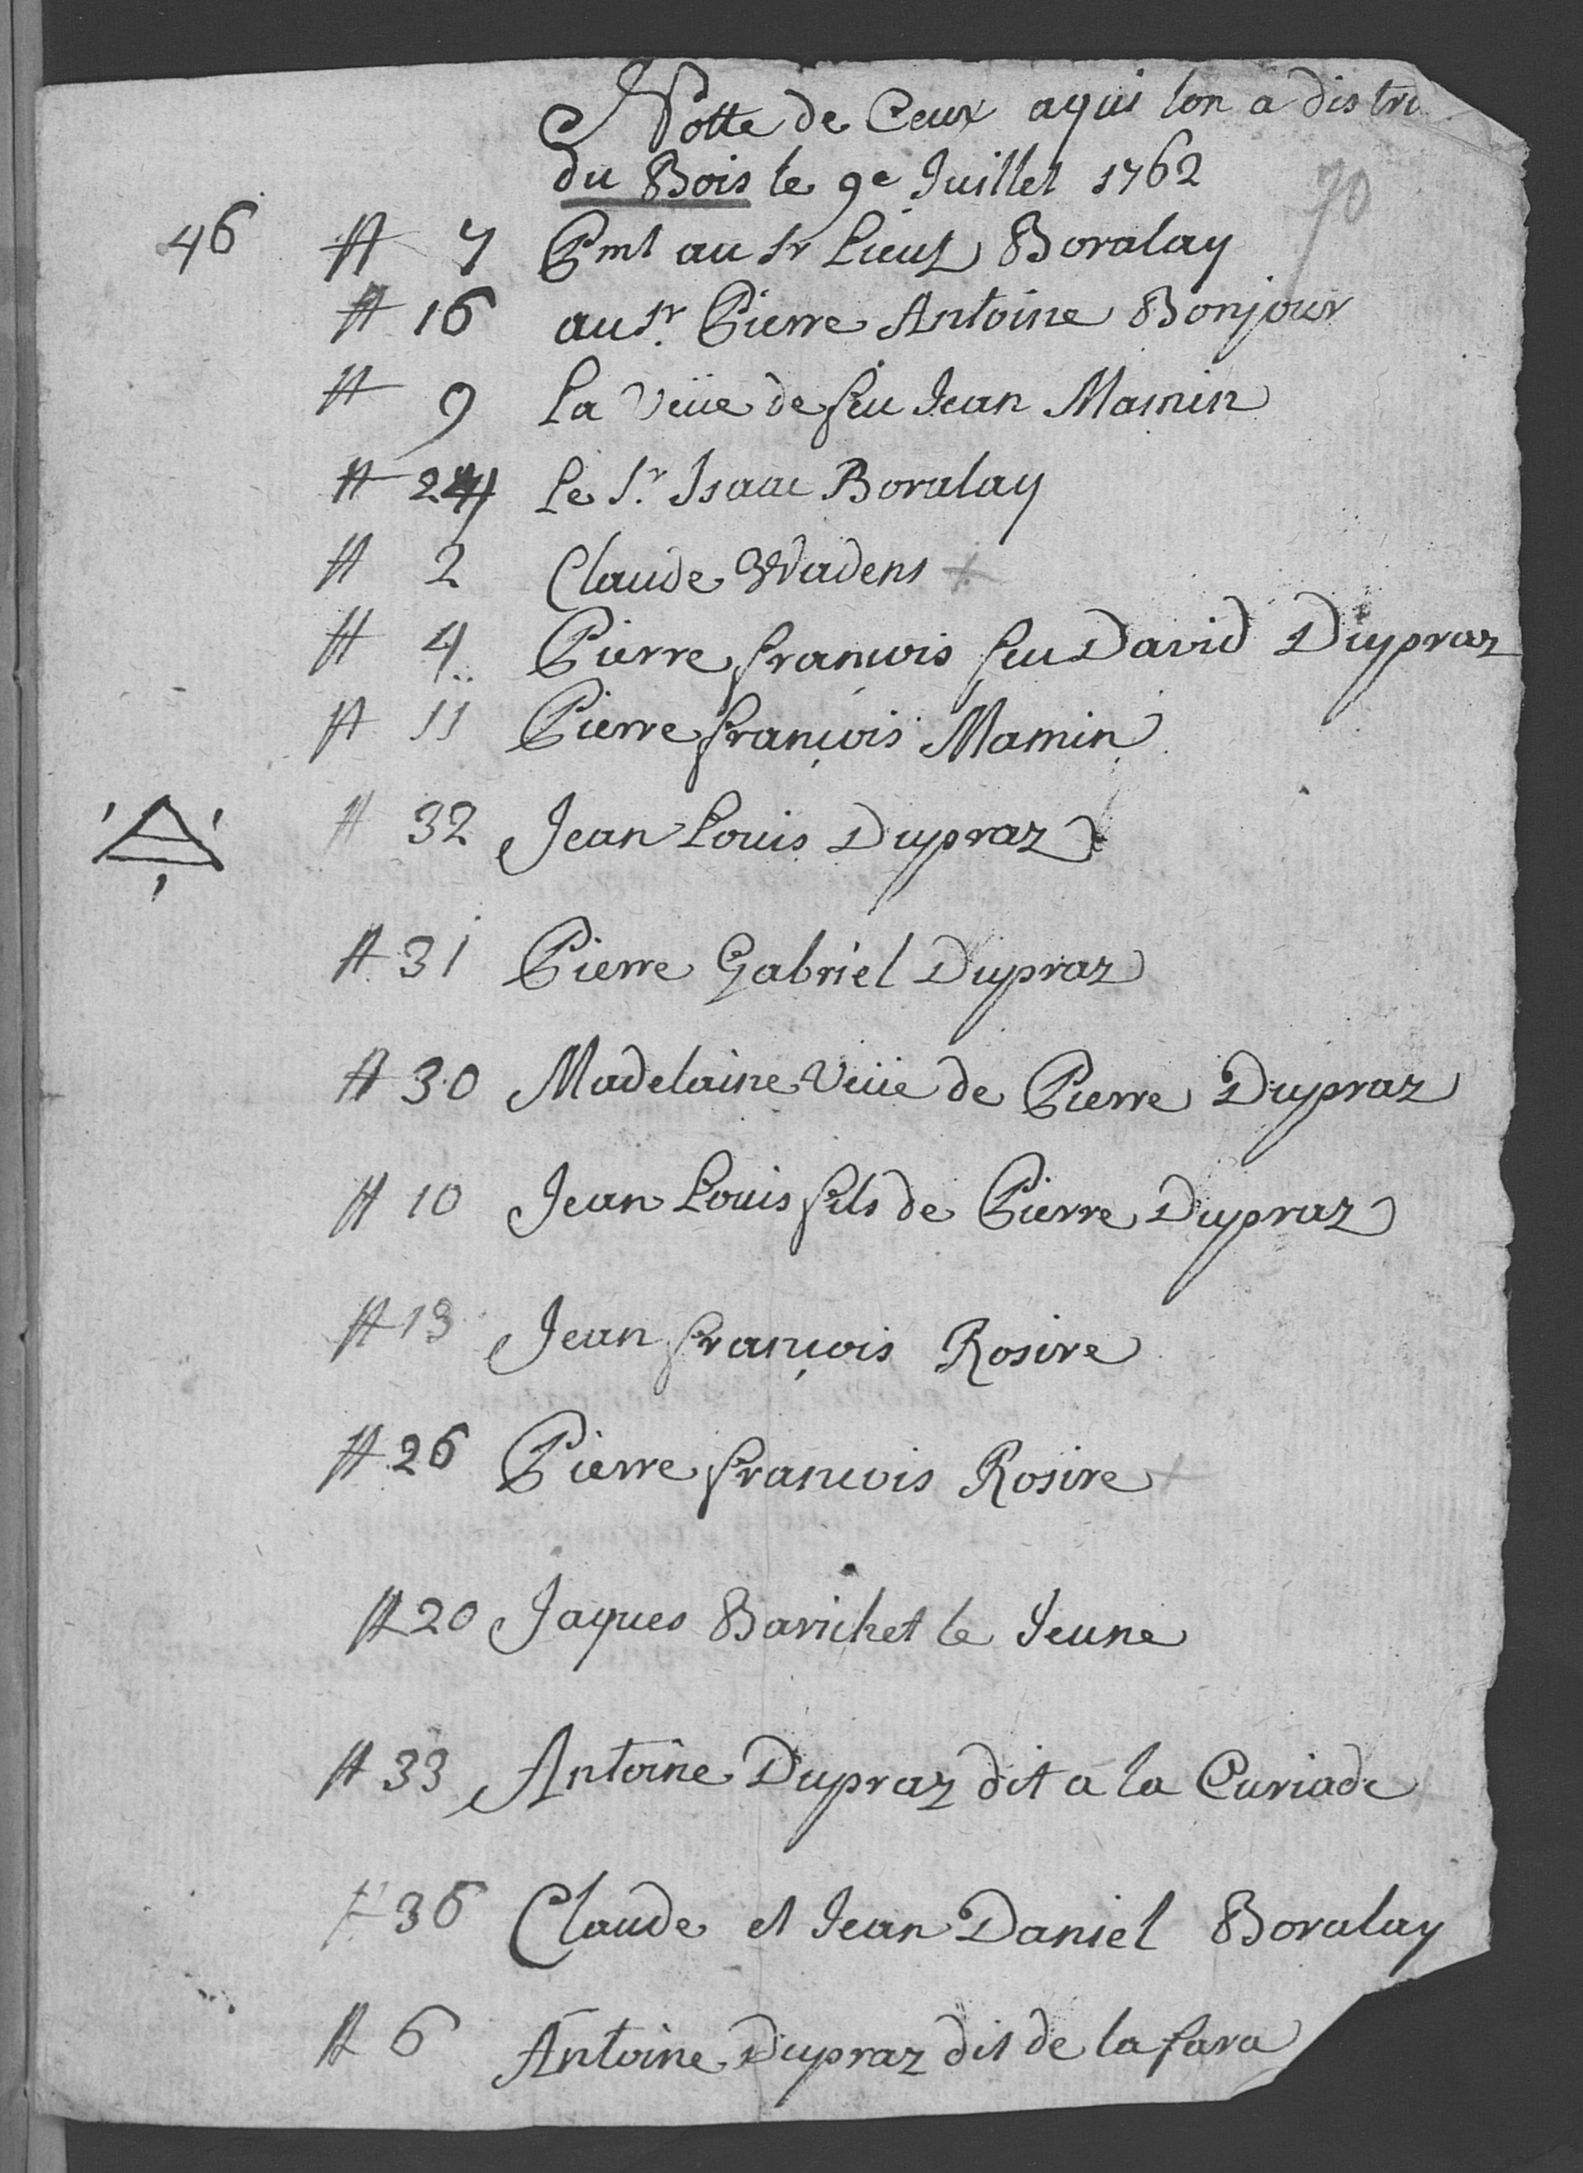 Notte de Ceux aqui lon a distri
du Bois le 9e Juillet 1762
70
46 # 7 Pmt au Sr Lieut Boralay
# 16 au Sr. Pierre Antoine Bonjour
# 9 La Veüe de feu Jean Mamin
# 24 Le Sr. Isaac Boralay
# 2 Claude Wadens +
# 4 Pierre francois feu David Dupraz
# 11 Pierre françois Mamin
# 32 Jean Louis Dupraz
# 31 Pierre Gabriel Dupraz
# 30 Madelaine Veüe de Pierre Dupraz
# 10 Jean Louis fils de Pierre Dupraz
# 13 Jean françois Rosire
# 26 Pierre francois Rosire +
# 20 Jaques Barichet le Jeune
# 33 Antoine Dupraz dit a la Curiade
# 36 Claude et Jean Daniel Boralay
# 6 Antoine Dupraz dit de la fara